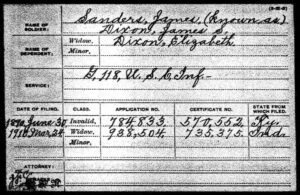 NAME OF SOLDIER: Sanders, James, (known as)
Dixon, James S.
NAME OF DEPENDENT: Widow, Dixon, Elizabeth.
Minor,
SERVICE: G. 118, U. S. C. Inf.
DATE OF FILING. CLASS. APPLICATION NO. CERTIFICATE NO. STATE FROM WHICH FILED.
1890 June 30 Invalid, 784833. 570,552. Ky.
1910 Mar. 24 Widow, 938,504. 735,375. Ind.
Minor,
ATTORNEY: